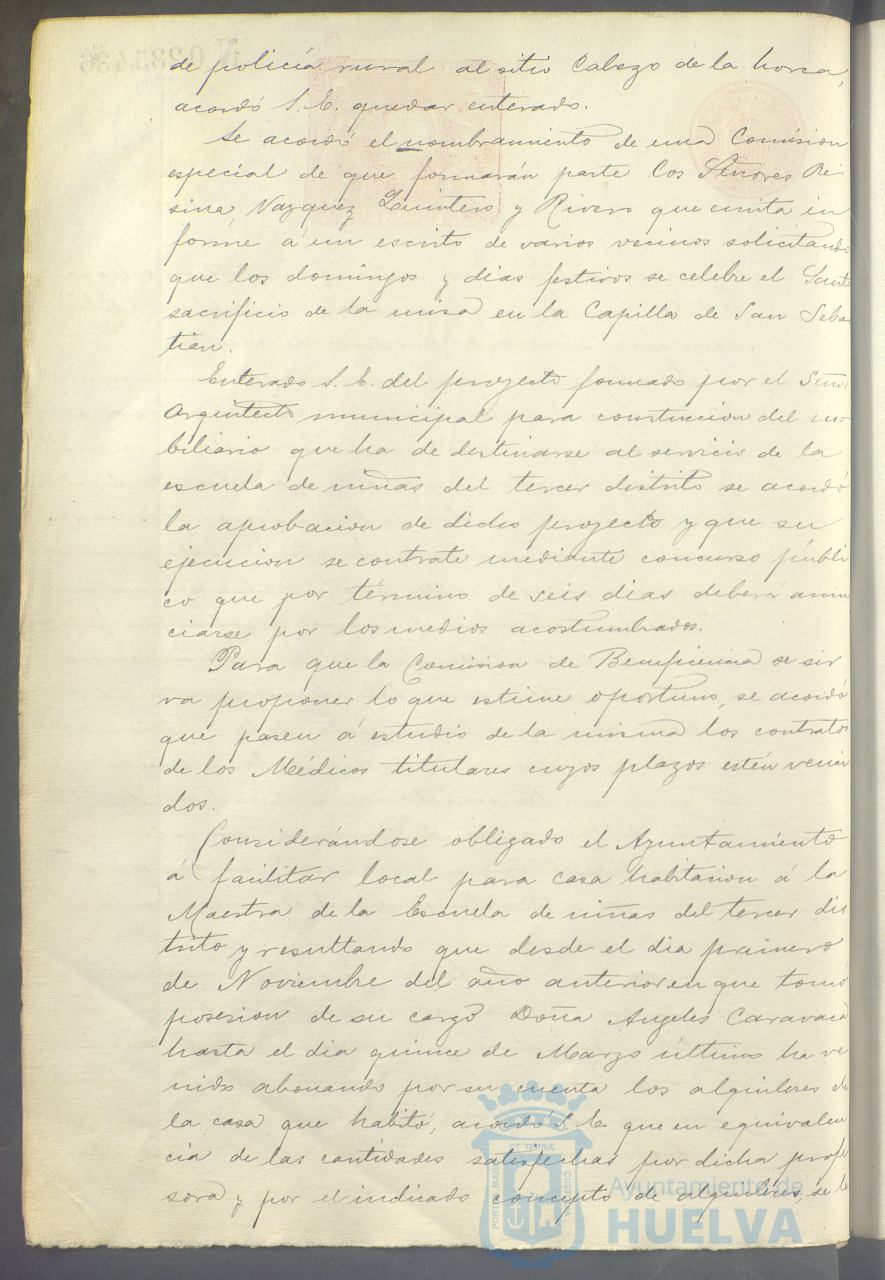 de policía rural al sitio Cabezo de la horca,
acordó S. E. quedar enterado.
Se acordó el nombramiento de una Comision
especial de que formarán parte los Señores Rei
sina, Vazquez Quintero y Rivero que emita in
forme á un escrito de varios vecinos solicitando
que los domingos y dias festivos se celebre el Santo
sacrificio de la misa en la Capilla de San Sebas
tian.
Enterado S. E. del proyecto formado por el Señor
Arquitecto municipal para construccion del mo
biliario que ha de destinarse al servicio de la
escuela de niñas del tercer distrito se acordó
la aprobacion de dicho proyecto y que su
ejecucion se contrate mediante concurso públi
co que por término de seis dias deberá anun
ciarse por los medios acostumbrados.
Para que la Comision de Beneficencia se sir
va proponer lo que estime oportuno, se acordó
que pasen á estudio de la misma los contratos
de los Médicos titulares cuyos plazos estén venci
dos.
Considerándose obligado el Ayuntamiento
á facilitar local para casa habitacion á la
Maestra de la Escuela de niñas del tercer dis
trito y resultando que desde el dia primero
de Noviembre del año anterior en que tomó
posesion de su cargo Doña Angeles Caravaca
hasta el dia quince de Marzo último ha ve
nido abonando por su cuenta los alquileres de
la casa que habitó, acordó S. E. que en equivalen
cia de las cantidades satisfechas por dicha profe
sora y por el indicado concepto de alquileres, se le
Ayuntamiento de
HUELVA